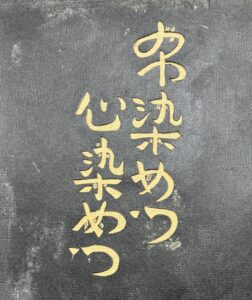 布染めつ
心染めつ